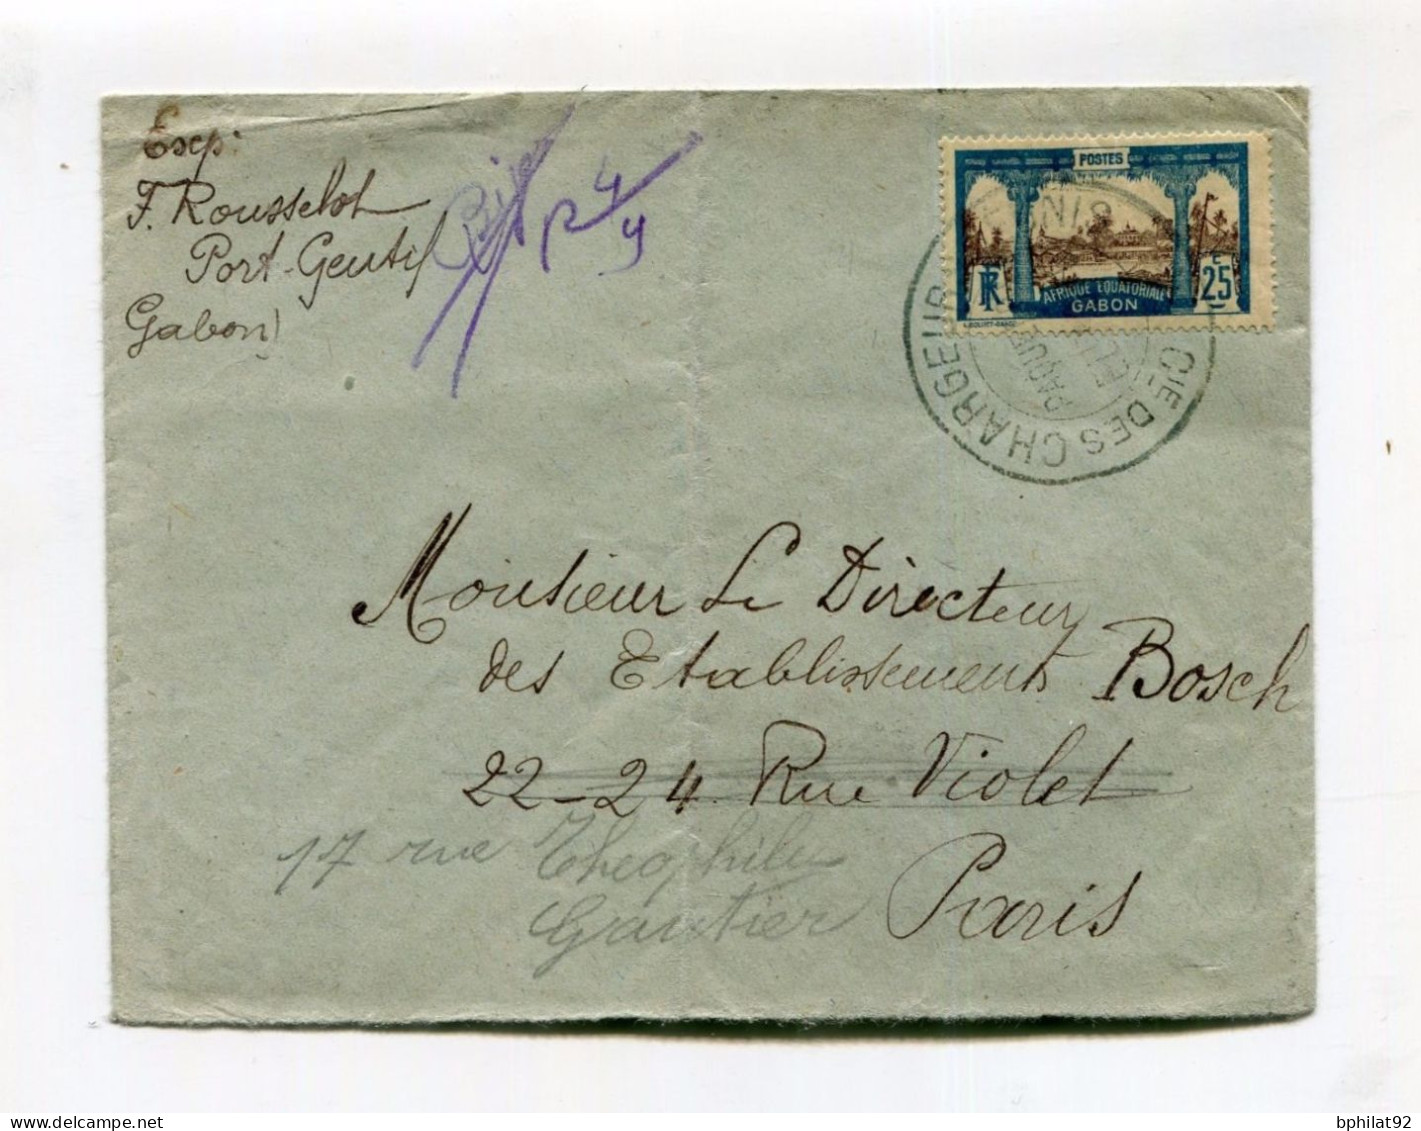 Exp:
F. Rousselot
Port-Gentil
Gabon)
R 4/4
POSTES
RF
AFRIQUE EQUATORIALE
GABON
25
CIE DES CHARGEUR
PAQUE
Monsieur Le Directeur
des Etablissements Bosch
22-24 Rue Violet
17 rue Théophile
Gautier
Paris
bphilat92